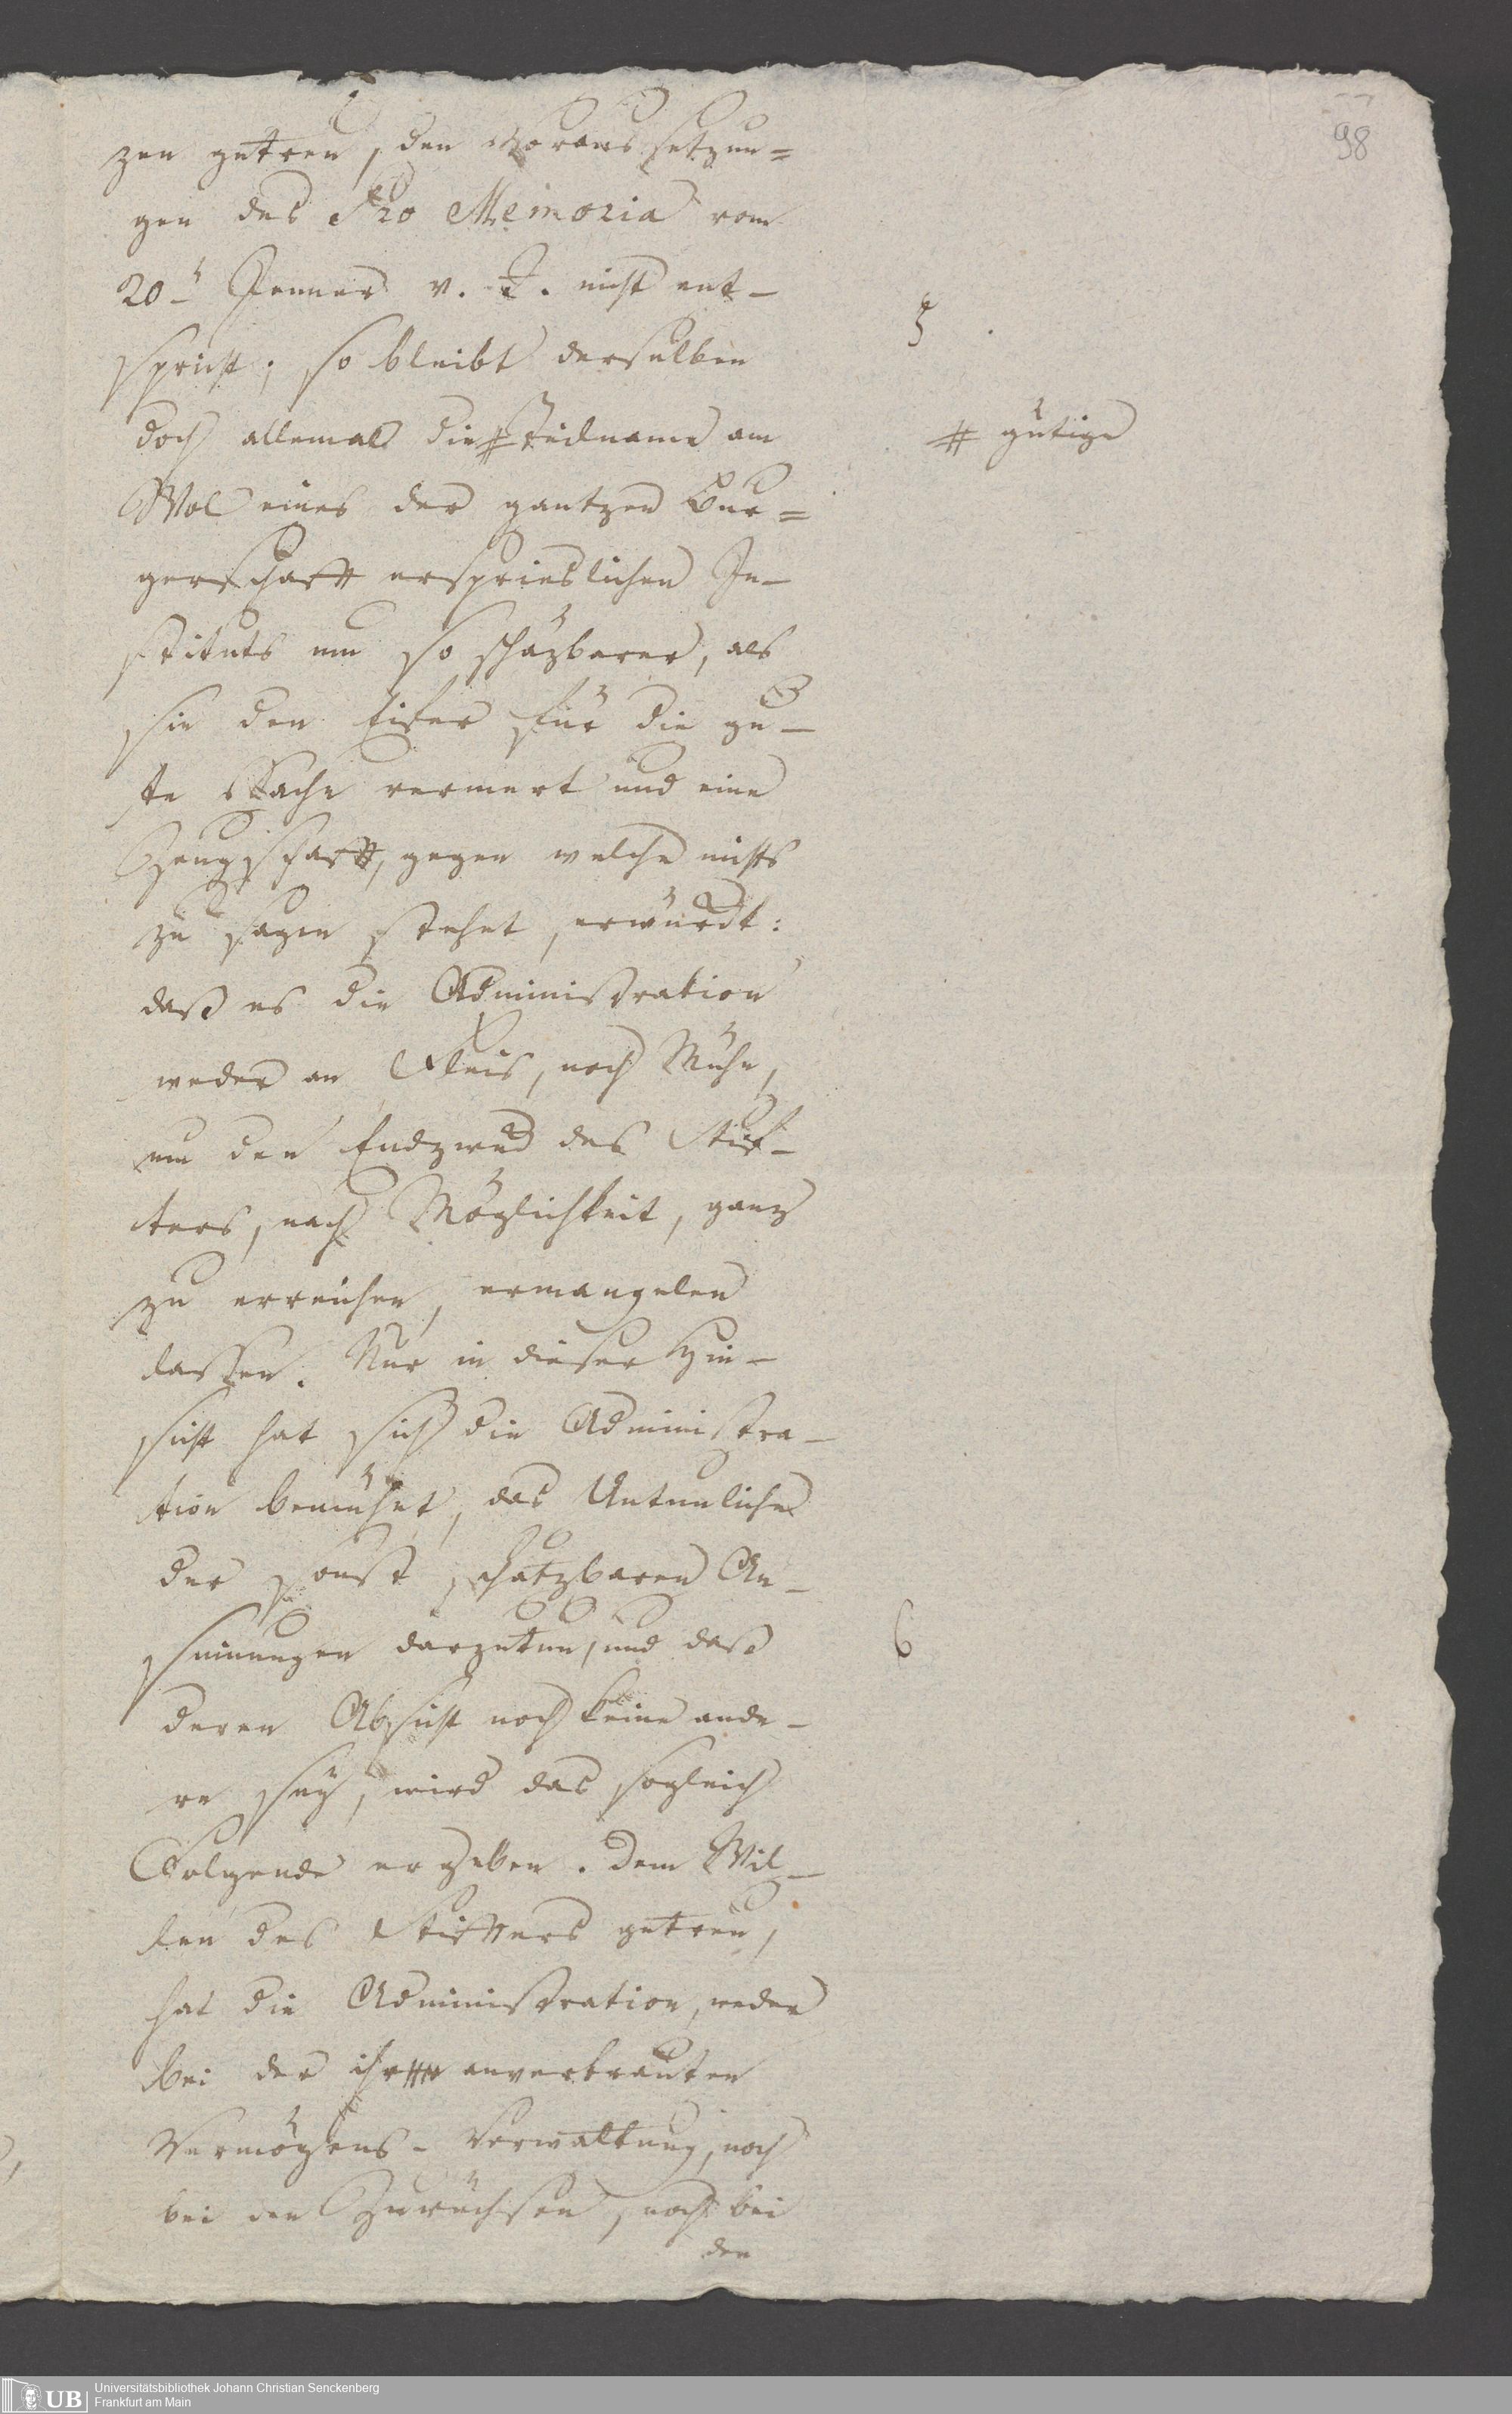 98
zen getreu, den Voraussetzun=
gen des Pro Memoria vom
20_t Jenner v. J. nicht ent-
spricht; so bleibt derselben
5
doch allemal die # Teilname am
# gütige
Wol eines der gantzen Bur=
gerschaft ersprieslichen In-
stituts um so schäzbarer, als
sie den Eifer für die gu-
te Sache vermert und eine
Zeugschaft, gegen welche nichts
zu sagen stehet, erwürckt:
daß es die Administration
weder an Fleis, noch Mühe,
um den Endzweck des Stif-
ters, nach Möglichkeit, ganz
zu erreichen, ermangelen
lassen. Nur in dieser Hin-
sicht hat sich die Administra-
tion bemühet, das Untunliche
der sonst schätzbaren An-
sinnungen darzutun, und daß
6
deren Absicht noch keine ande-
re sey, wird das sogleich
Folgende ergeben. Dem Wil-
len des Stifters getreu,
hat die Administration, weder
bei der ihr anvertrauten
Vermögens-Verwaltung, noch
bei den Zuwüchsen, noch bei
den
UB Universitätsbibliothek Johann Christian Senckenberg
Frankfurt am Main